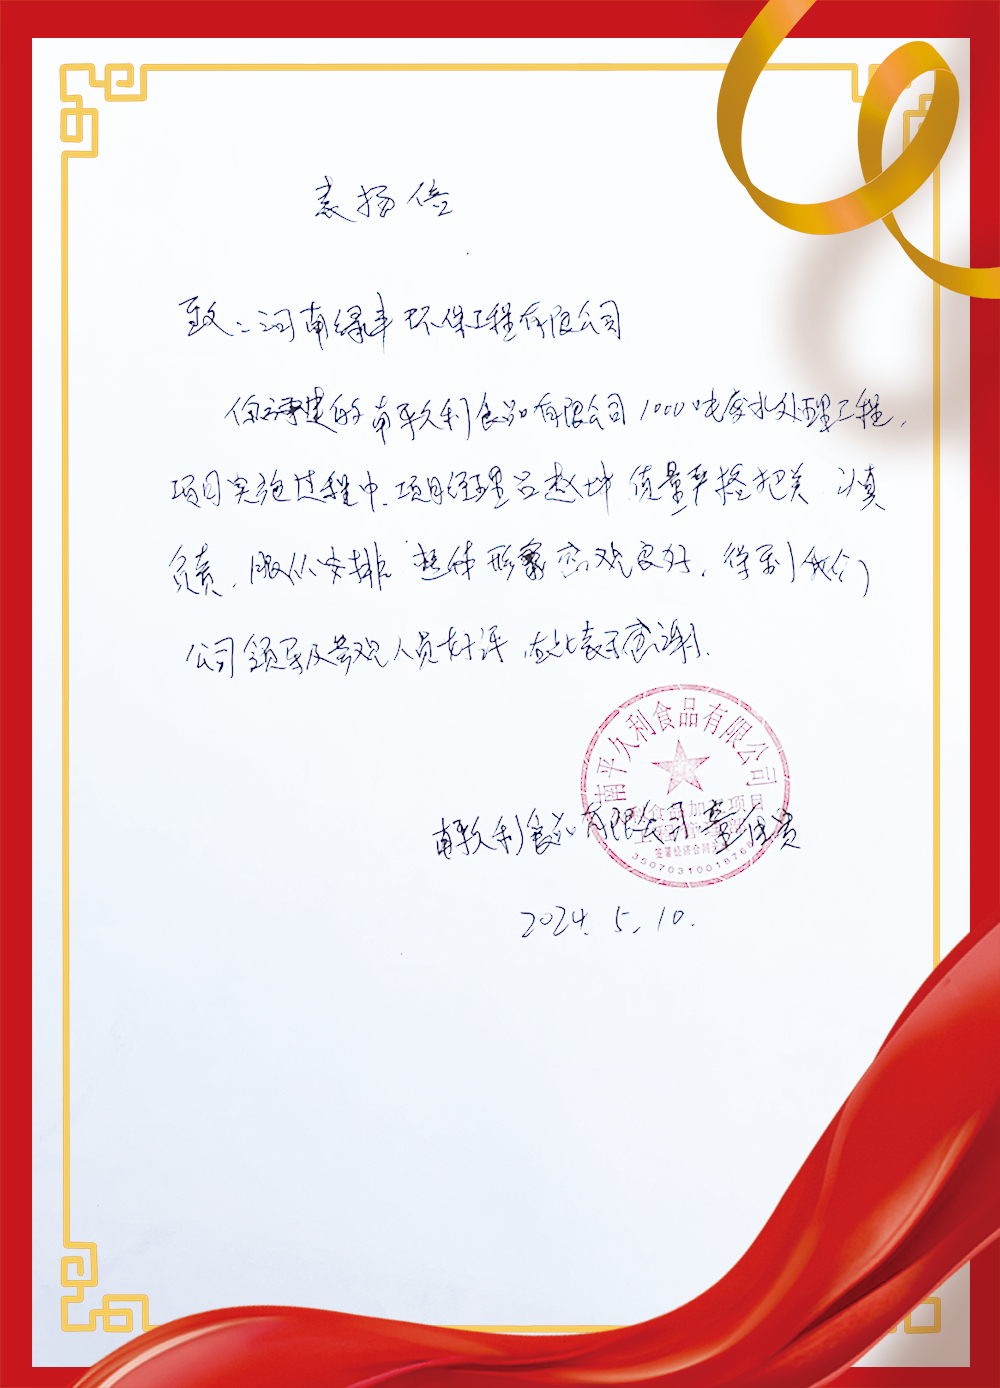 表扬信
致:河南绿丰环保工程有限公司
你司承建的南平久利食品有限公司1000吨废水处理工程,
项目实施过程中,项目经理吕赵坤 质量严格把关 认真
负责,服从安排 整体形象 观良好,得到我们
公司领导及参观人员好评,在此表示感谢.
南平久利食品有限公司
食品加工项目
签署经济合同无效
南平久利食品有限公司
2024.5.10.